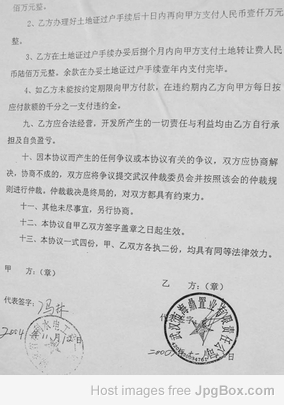 佰万元整。
2、乙方办理好土地证过户手续后十日内再向甲方支付人民币壹仟万元
整。
3、乙方在土地证过户手续办妥后捌个月内向甲方支付土地转让费人民
币陆佰万元整。余款在办妥土地证过户手续壹年内支付完毕。
4、如乙方未能按约定期限向甲方付款，在违约期内乙方向甲方每日按
应付款额的千分之一支付违约金。
九、乙方应合法经营，开发所产生的一切责任与利益均由乙方自行承
担及自负盈亏。
十、因本协议而产生的任何争议或本协议有关的争议，双方应协商解
决，协商不成的，双方应将争议提交武汉仲裁委员会并按照该会的仲裁规
则进行仲裁，仲裁裁决是终局的，对双方都具有约束力。
十一、其他未尽事宜，另行协商。
十二、本协议自甲乙双方签字盖章之日起生效。
十三、本协议一式四份，甲、乙双方各执二份，均具有同等法律效力。
甲 方：（章）
乙 方：（章）
代表签字：
代表签字：
2004 11月12日
Host images free JpgBox.com